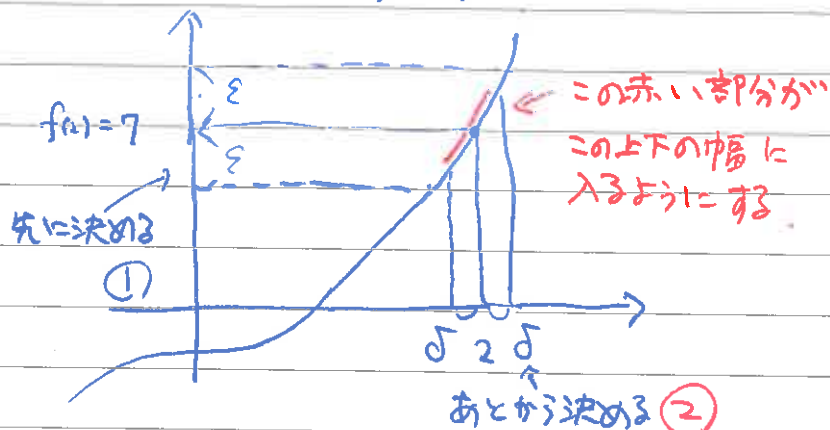 ε
f(2)=7
ε
先に決める
①
この赤い部分が
この上下の幅に
入るようにする
δ 2 δ
あとから決める ②